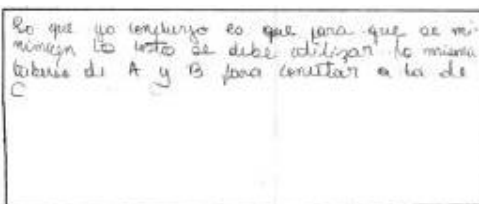 Lo que yo concluyo es que para que se mi-
nimicen lo costo se debe utilizar la misma
tuberia de A y B para conectar a la de
C